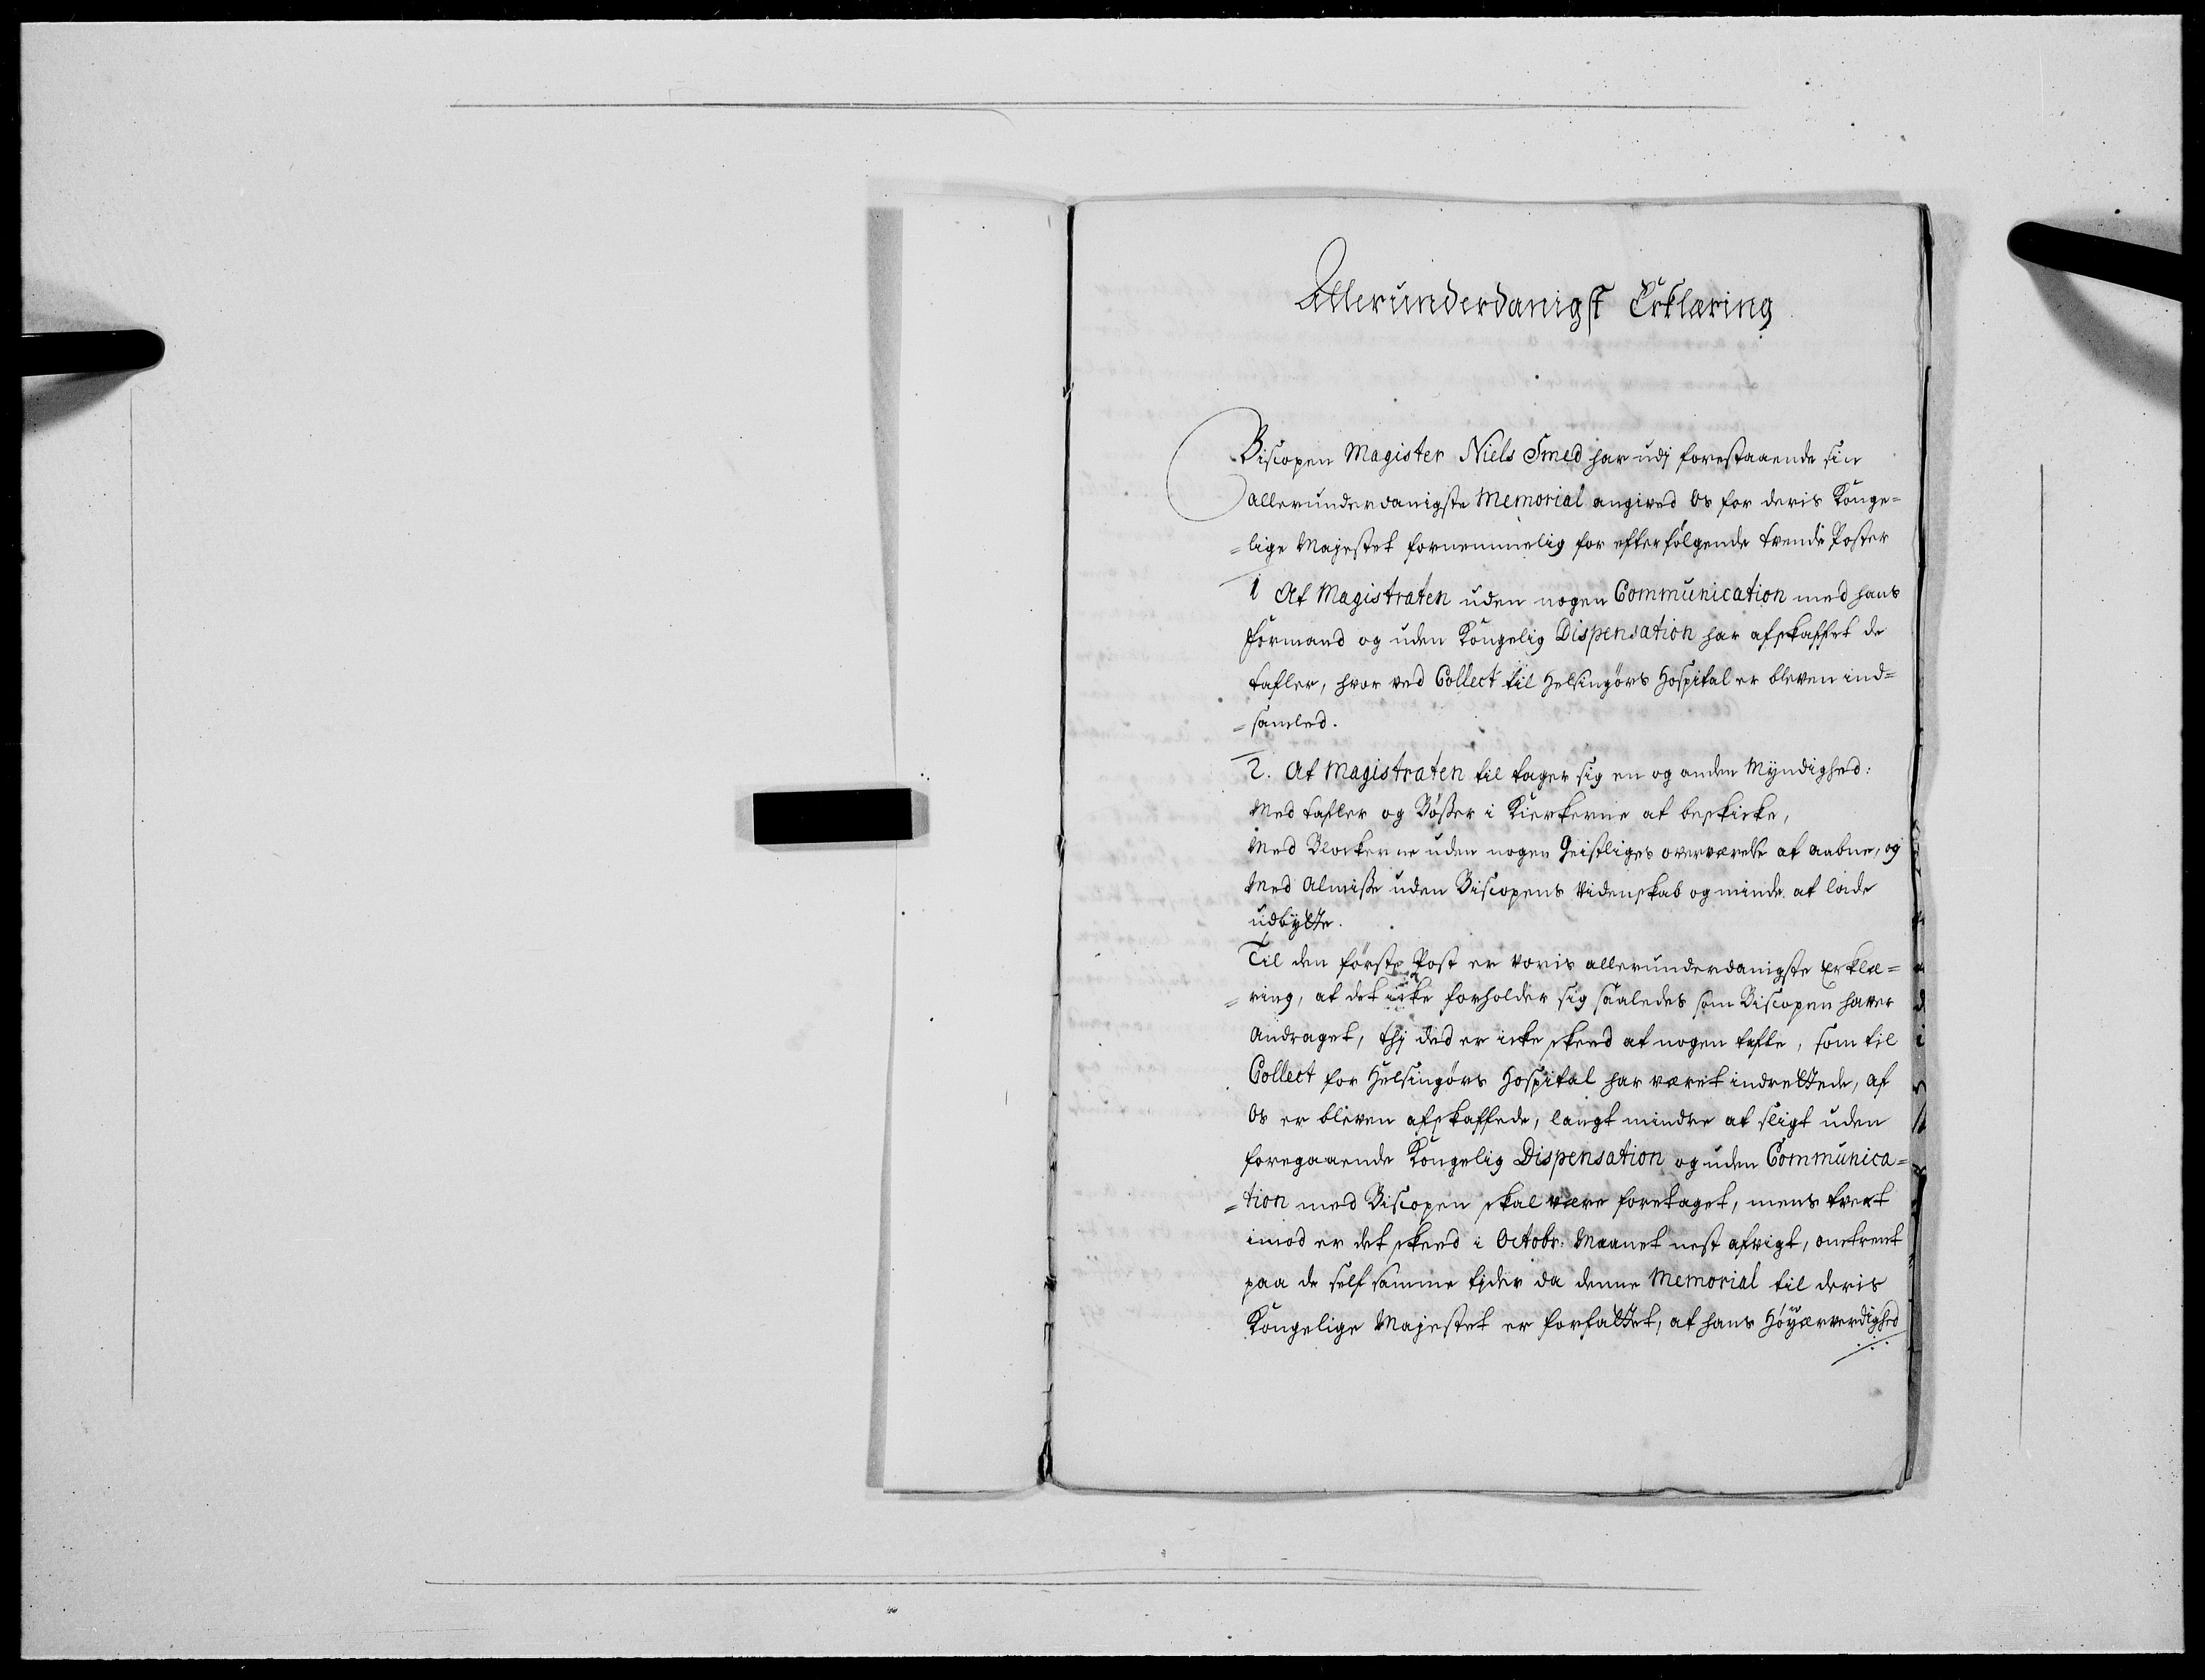 Allerunderdanigst Erklæring
Biscopen Magister Niels Smed har udj forestaaende sin
allerunderdanigste Memorial angived Os for deris Konge=
=lige Majestet fornemmelig for efterfølgende tvende Poster
1 At Magistraten uden nogen Communication med hans
formand og uden Kongelig Dispensation har afskaffet de
tafler, hvor ved Collect til Helsingørs Hospital er bleven ind=
=samled.
2. At Magistraten til tager sig en og anden Myndighed:
Med tafler og Bøsser i Kierkerne at beskicke,
Med Blockerne uden nogen Geistliges overværelse at aabne, og
Med Almisse uden Biscopens Videnskab og minde at lade
udbytte.
Til den første Post er voris allerunderdanigste Erklæ=
=ring, at det icke forholder sig saaledes som Biscopen haver
Andraget, thj ded er icke skeed at nogen tafle, som til
Collect for Helsingørs Hospital har været indrettede, af
Os er bleven afskaffede, langt mindre at sligt uden
foregaaende Kongelig Dispensation og uden Communica=
=tion med Biscopen skal være foretaget, mens tvert
imod er det skeed i Octobr: Maanet nest afvigt, omtrent
paa de self samme tjder da denne Memorial til deris
Kongelige Majestet er forfattet, at hans Høyærverdighed